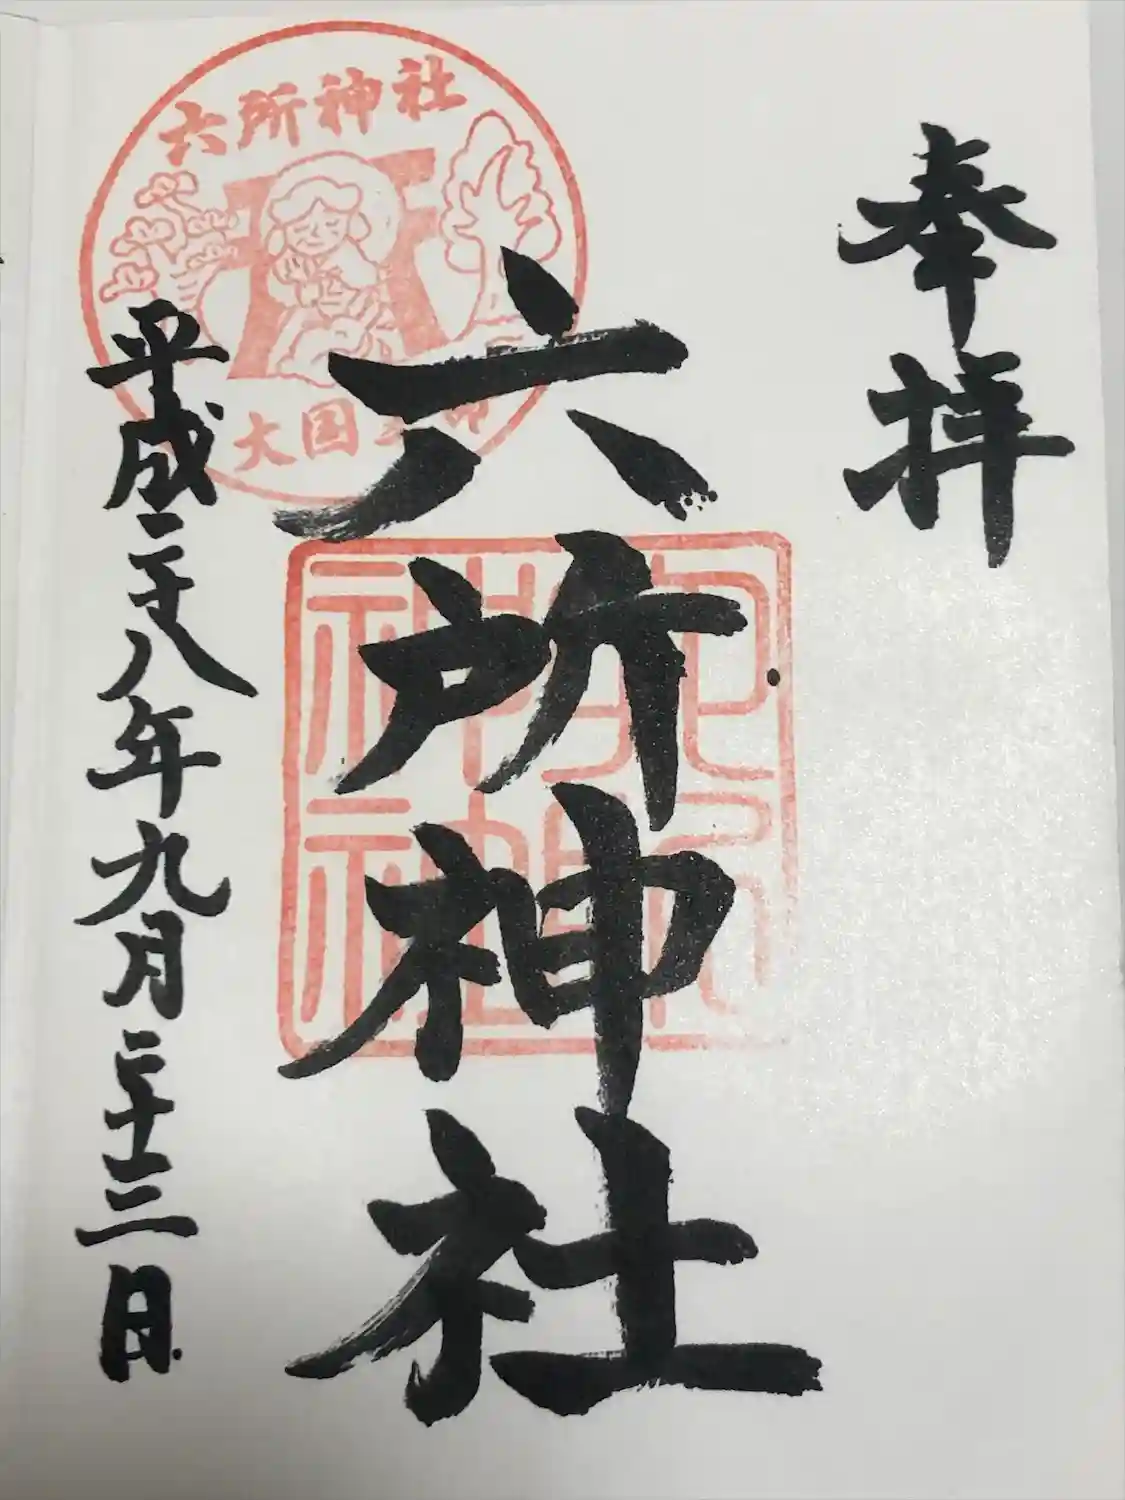 奉拝
六所神社
平成二十八年九月二十三日
六所神社
大国
六所神社